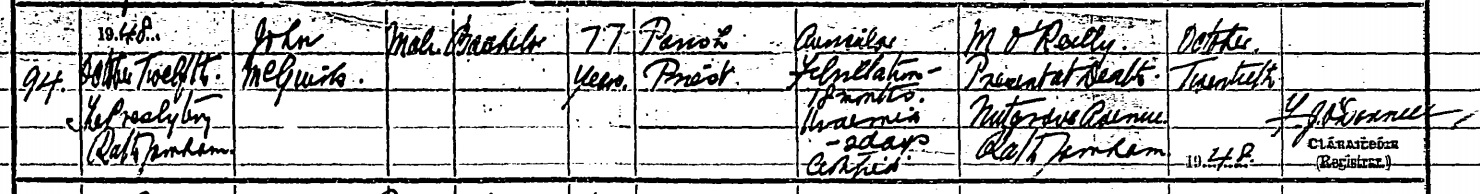 94.
1948.
October Twelfth.
The Presbytery
Rathfarnham.
John
McGuirk.
Male
Bachelor
77
Years.
Parish
Priest.
Auricular
Fibrillation -
18 months.
Uraemia
- 2 days
Certified
M O'Reilly.
Present at Death.
Nutgrove Avenue.
Rathfarnham
October.
Twentieth
1948.
J. O'Donnell
CLÁRAITHEOIR
(Registrar.)